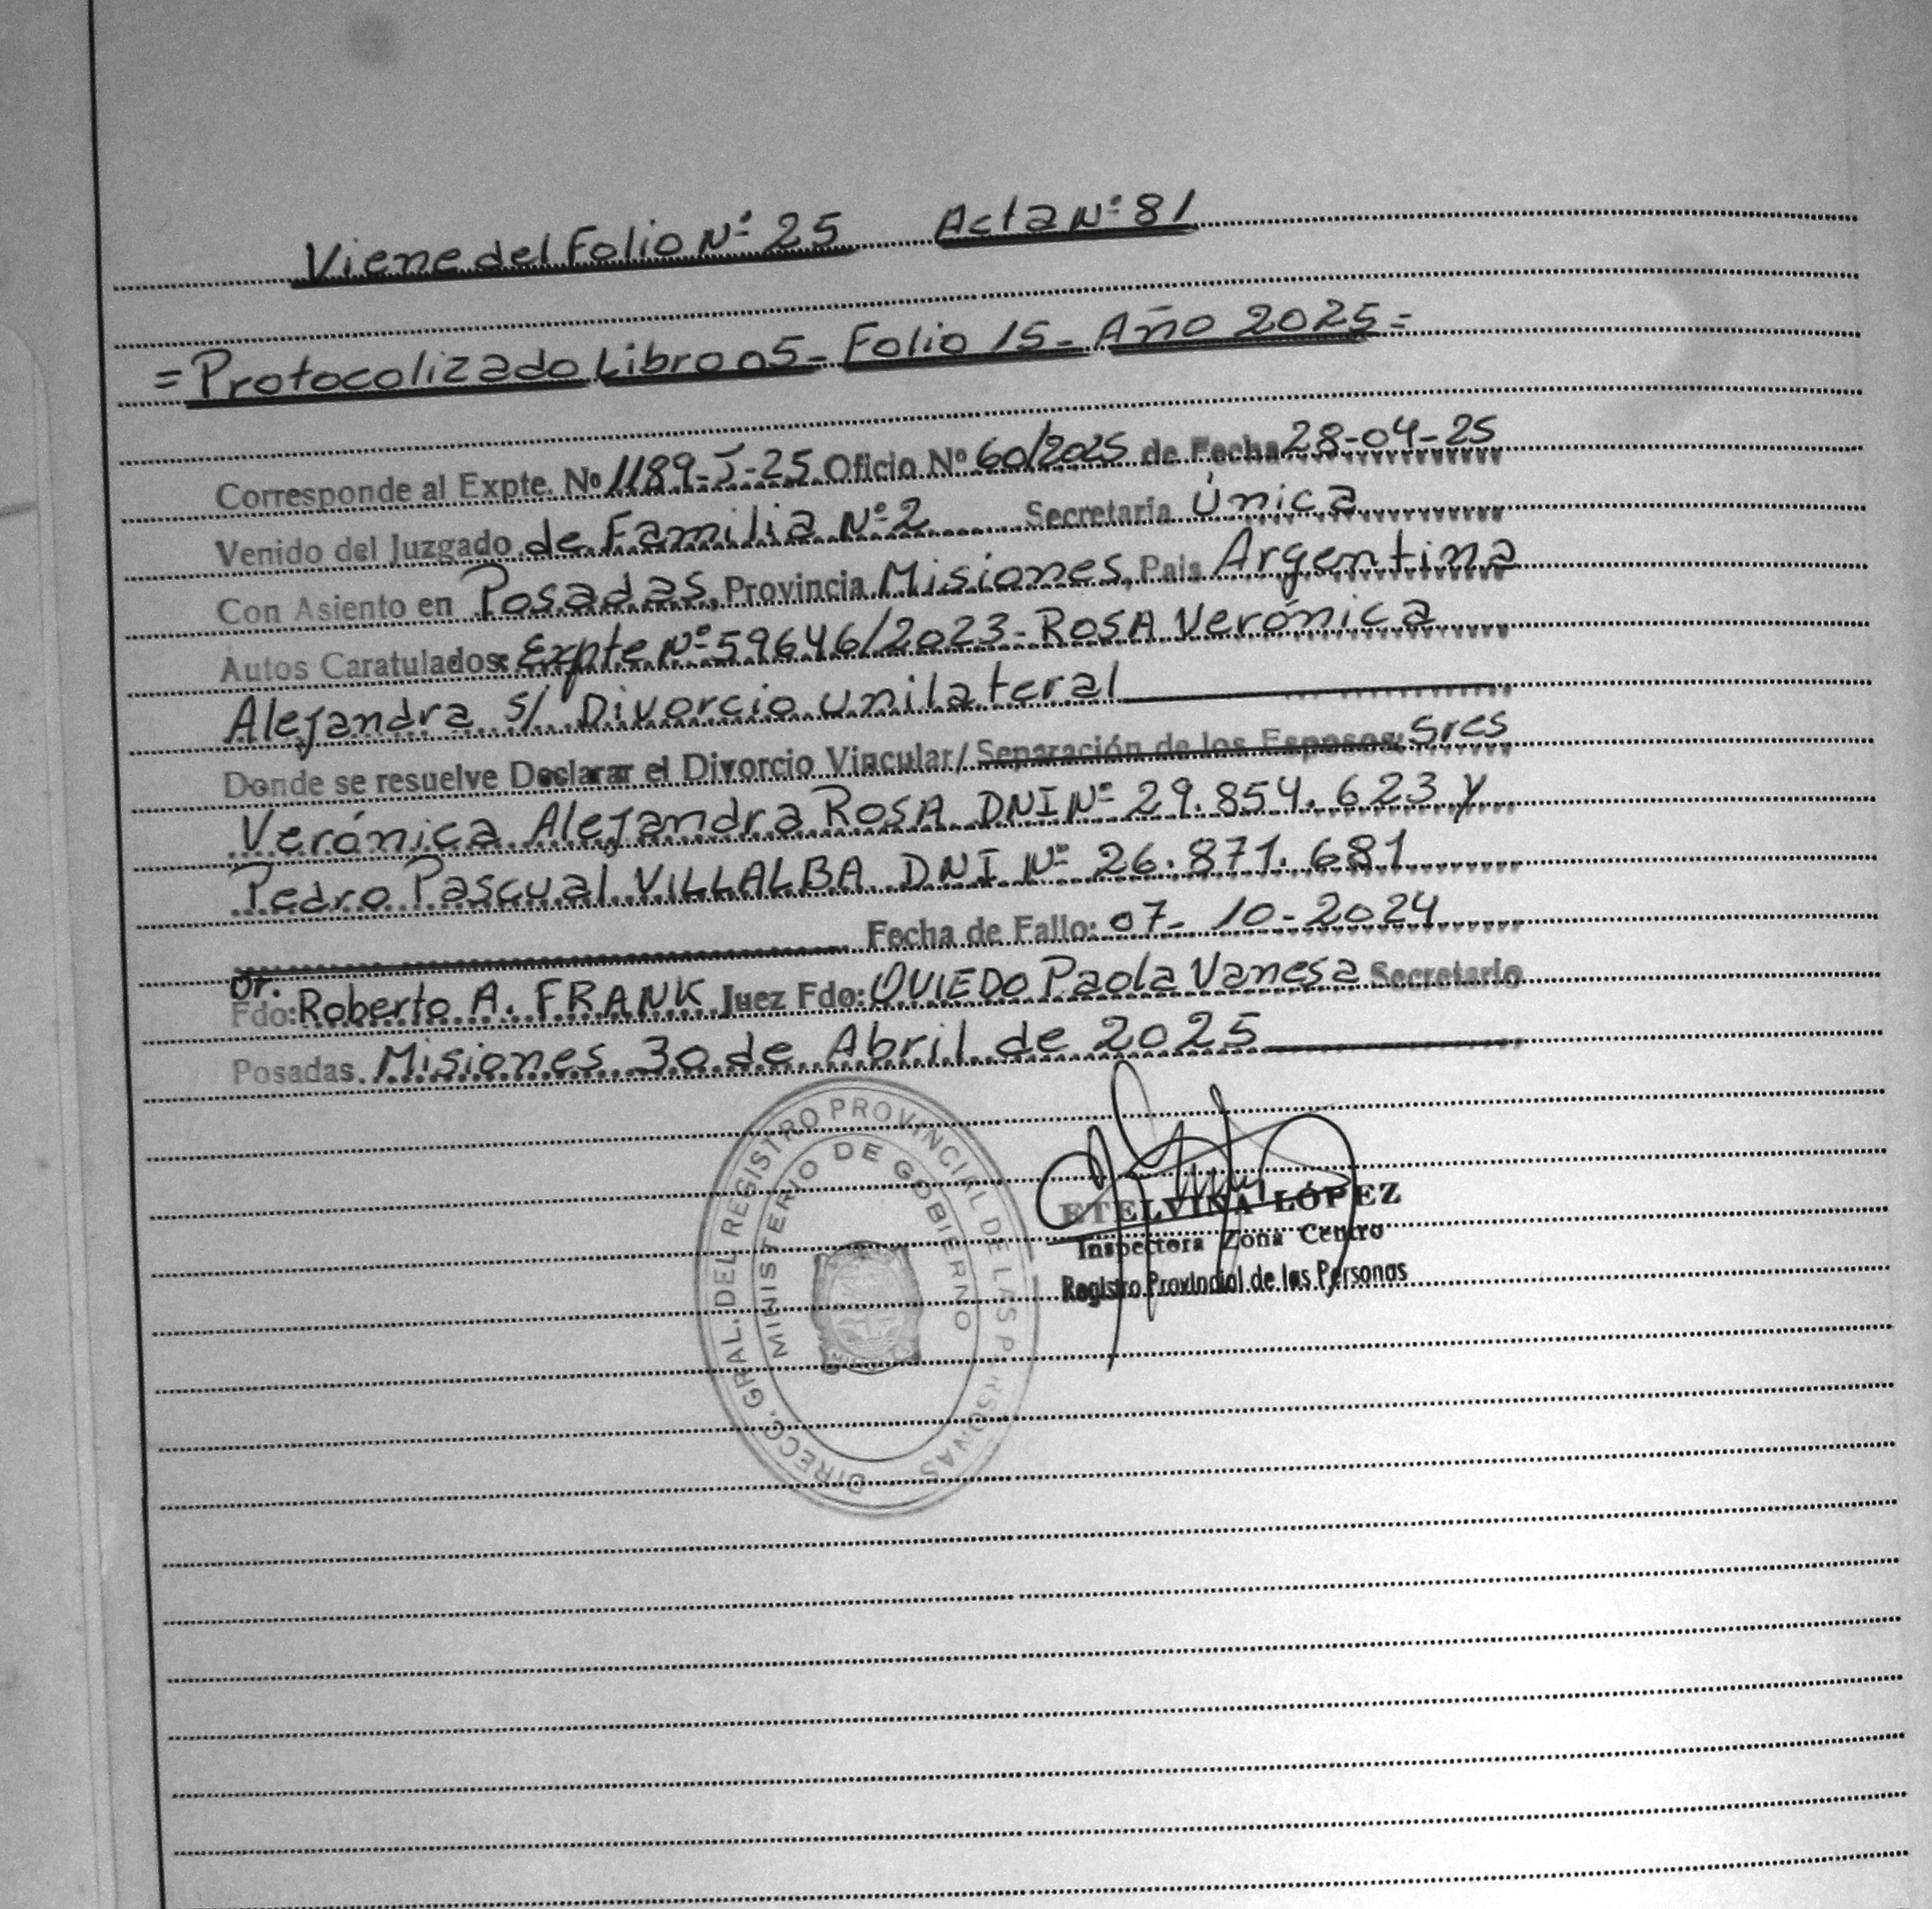 Viene del Folio Nº 25 Acta Nº 81
= Protocolizado Libro 05 - Folio 15 - Año 2025 =
Corresponde al Expte. Nº 1189-J-25 Oficio Nº 60/2025 de Fecha 28-04-25
Venido del Juzgado de Familia Nº 2 Secretaría Única
Con Asiento en Posadas, Provincia Misiones, Pais Argentina
Autos Caratulados: Expte Nº 59646/2023 - ROSA Verónica
Alejandra s/ Divorcio unilateral
Donde se resuelve Declarar el Divorcio Vincular/ Separación de los Esposos: Sres
Verónica Alejandra ROSA DNI Nº 29.854.623 y
Pedro Pascual VILLALBA DNI Nº 26.871.681
Fecha de Fallo: 07-10-2024
Dr.
Fdo: Roberto A. FRANK Juez Fdo: OVIEDO Paola Vanesa Secretario
Posadas. Misiones 30 de Abril de 2025
DIRECC. GRAL. DEL REGISTRO PROVINCIAL DE LAS PERSONAS
MINISTERIO DE GOBIERNO
ETELVINA LÓPEZ
Inspectora Zona Centro
Registro Provincial de las Personas